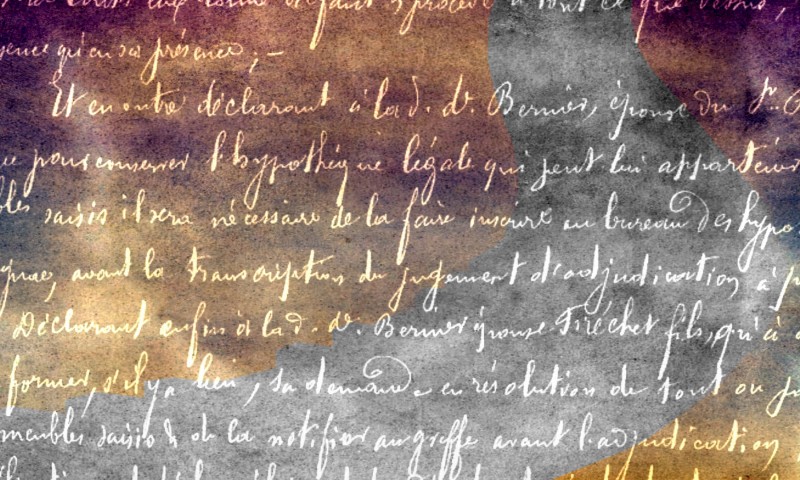 défaut procédé à tout ce que dessus,
qu'en sa présence ;—
Et en outre déclarant à la d. de. Bernier, épouse du
pour conserver l'hypothèque légale qui peut lui appartenir
saisis il sera nécessaire de la faire inscrire au bureau des hypo
avant la transcription du jugement d'adjudication à
Déclarant enfin à la d. de. Bernier épouse Fréchet fils, qu'à
former, s'il y a lieu, sa demande en résolution de tout ou
meubles saisis & de la notifier au greffe avant l'adjudication